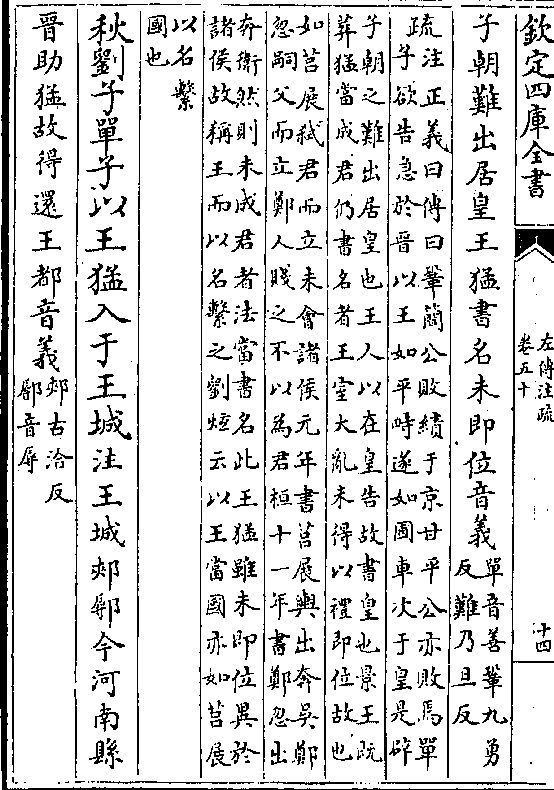 欽定四庫全書
左傳注疏
卷五十
十四
子朝難出居皇王猛書名未即位音義單音善鞏九勇
反難乃旦反
疏注正義曰傳曰鞏簡公敗績于京甘平公亦敗焉單
子欲告急於晉以王如平時遂如圃車次于皇是辟
子朝之難出居皇也王人以在皇告故書皇也景王既
葬猛當成君仍書名者王室大亂未得以禮即位故也
如莒展弑君而立未會諸侯元年書莒展輿出奔吳鄭
忽嗣父而立鄭人賤之不以為君桓十一年書鄭忽出
奔衛然則未成君者法當書名此王猛雖未即位異於
諸侯故稱王而以名繫之劉炫云以王當國亦如莒展
以名繫
國也
秋劉子單子以王猛入于王城注王城郟鄏今河南縣
晉助猛故得還王都音義郟古洽反
鄏音辱